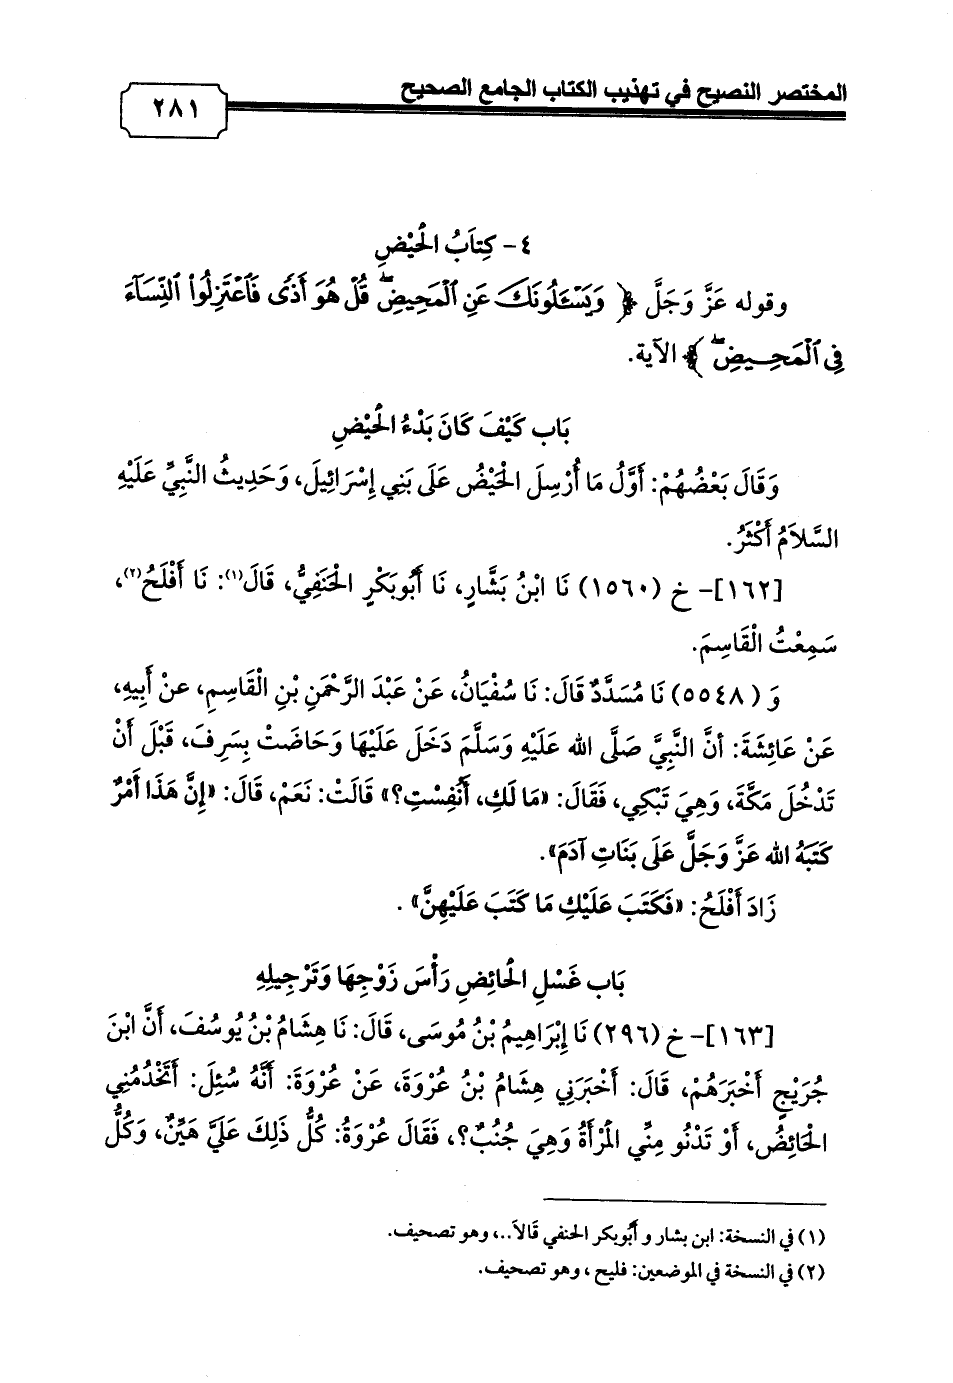 المختصر النصيح في تهذيب الكتاب الجامع الصحيح
٢٨١
٤- كِتَابُ الحَيْضِ
وقوله عَزَّ وَجَلَّ ﴿ وَيَسْـَٔلُونَكَ عَنِ ٱلْمَحِيضِۖ قُلْ هُوَ أَذًى فَٱعْتَزِلُوا۟ ٱلنِّسَآءَ
فِى ٱلْمَحِيضِۖ ﴾ الآية.
بَاب كَيْفَ كَانَ بَدْءُ الحَيْضِ
وَقَالَ بَعْضُهُمْ: أَوَّلُ مَا أُرْسِلَ الحَيْضُ عَلَى بَنِي إِسْرَائِيلَ، وَحَدِيثُ النَّبِيِّ عَلَيْهِ
السَّلاَمُ أَكْثَرُ.
[١٦٢]- خ (١٥٦٠) نَا ابْنُ بَشَّارٍ، نَا أَبُوبَكْرٍ الحَنَفِيُّ، قَالَ(١): نَا أَفْلَحُ(٢)،
سَمِعْتُ الْقَاسِمَ.
وَ (٥٥٤٨) نَا مُسَدَّدٌ قَالَ: نَا سُفْيَانُ، عَنْ عَبْدَ الرَّحْمَنِ بْنِ الْقَاسِمِ، عنْ أَبِيهِ،
عَنْ عَائِشَةَ: أنَّ النَّبِيَّ صَلَّى الله عَلَيْهِ وَسَلَّمَ دَخَلَ عَلَيْهَا وَحَاضَتْ بِسَرِفَ، قَبْلَ أَنْ
تَدْخُلَ مَكَّةَ، وَهِيَ تَبْكِي، فَقَالَ: «مَا لَكِ، أَنُفِسْتِ؟» قَالَتْ: نَعَمْ، قَالَ: «إِنَّ هَذَا أَمْرٌ
كَتَبَهُ الله عَزَّ وَجَلَّ عَلَى بَنَاتِ آدَمَ».
زَادَ أَفْلَحُ: «فَكَتَبَ عَلَيْكِ مَا كَتَبَ عَلَيْهِنَّ» .
بَاب غَسْلِ الحَائِضِ رَأْسَ زَوْجِهَا وَتَرْجِيلِهِ
[١٦٣]- خ (٢٩٦) نَا إِبْرَاهِيمُ بْنُ مُوسَى، قَالَ: نَا هِشَامُ بْنُ يُوسُفَ، أَنَّ ابْنَ
جُرَيْجٍ أَخْبَرَهُمْ، قَالَ: أَخْبَرَنِي هِشَامُ بْنُ عُرْوَةَ، عَنْ عُرْوَةَ: أَنَّهُ سُئِلَ: أَتَخْدُمُنِي
الحَائِضُ، أَوْ تَدْنُو مِنِّي المَرْأَةُ وَهِيَ جُنُبٌ؟، فَقَالَ عُرْوَةُ: كُلُّ ذَلِكَ عَلَيَّ هَيِّنٌ، وَكُلُّ
(١) في النسخة: ابن بشار و أبوبكر الحنفي قَالاَ..، وهو تصحيف.
(٢) في النسخة في الموضعين: فليح ، وهو تصحيف.